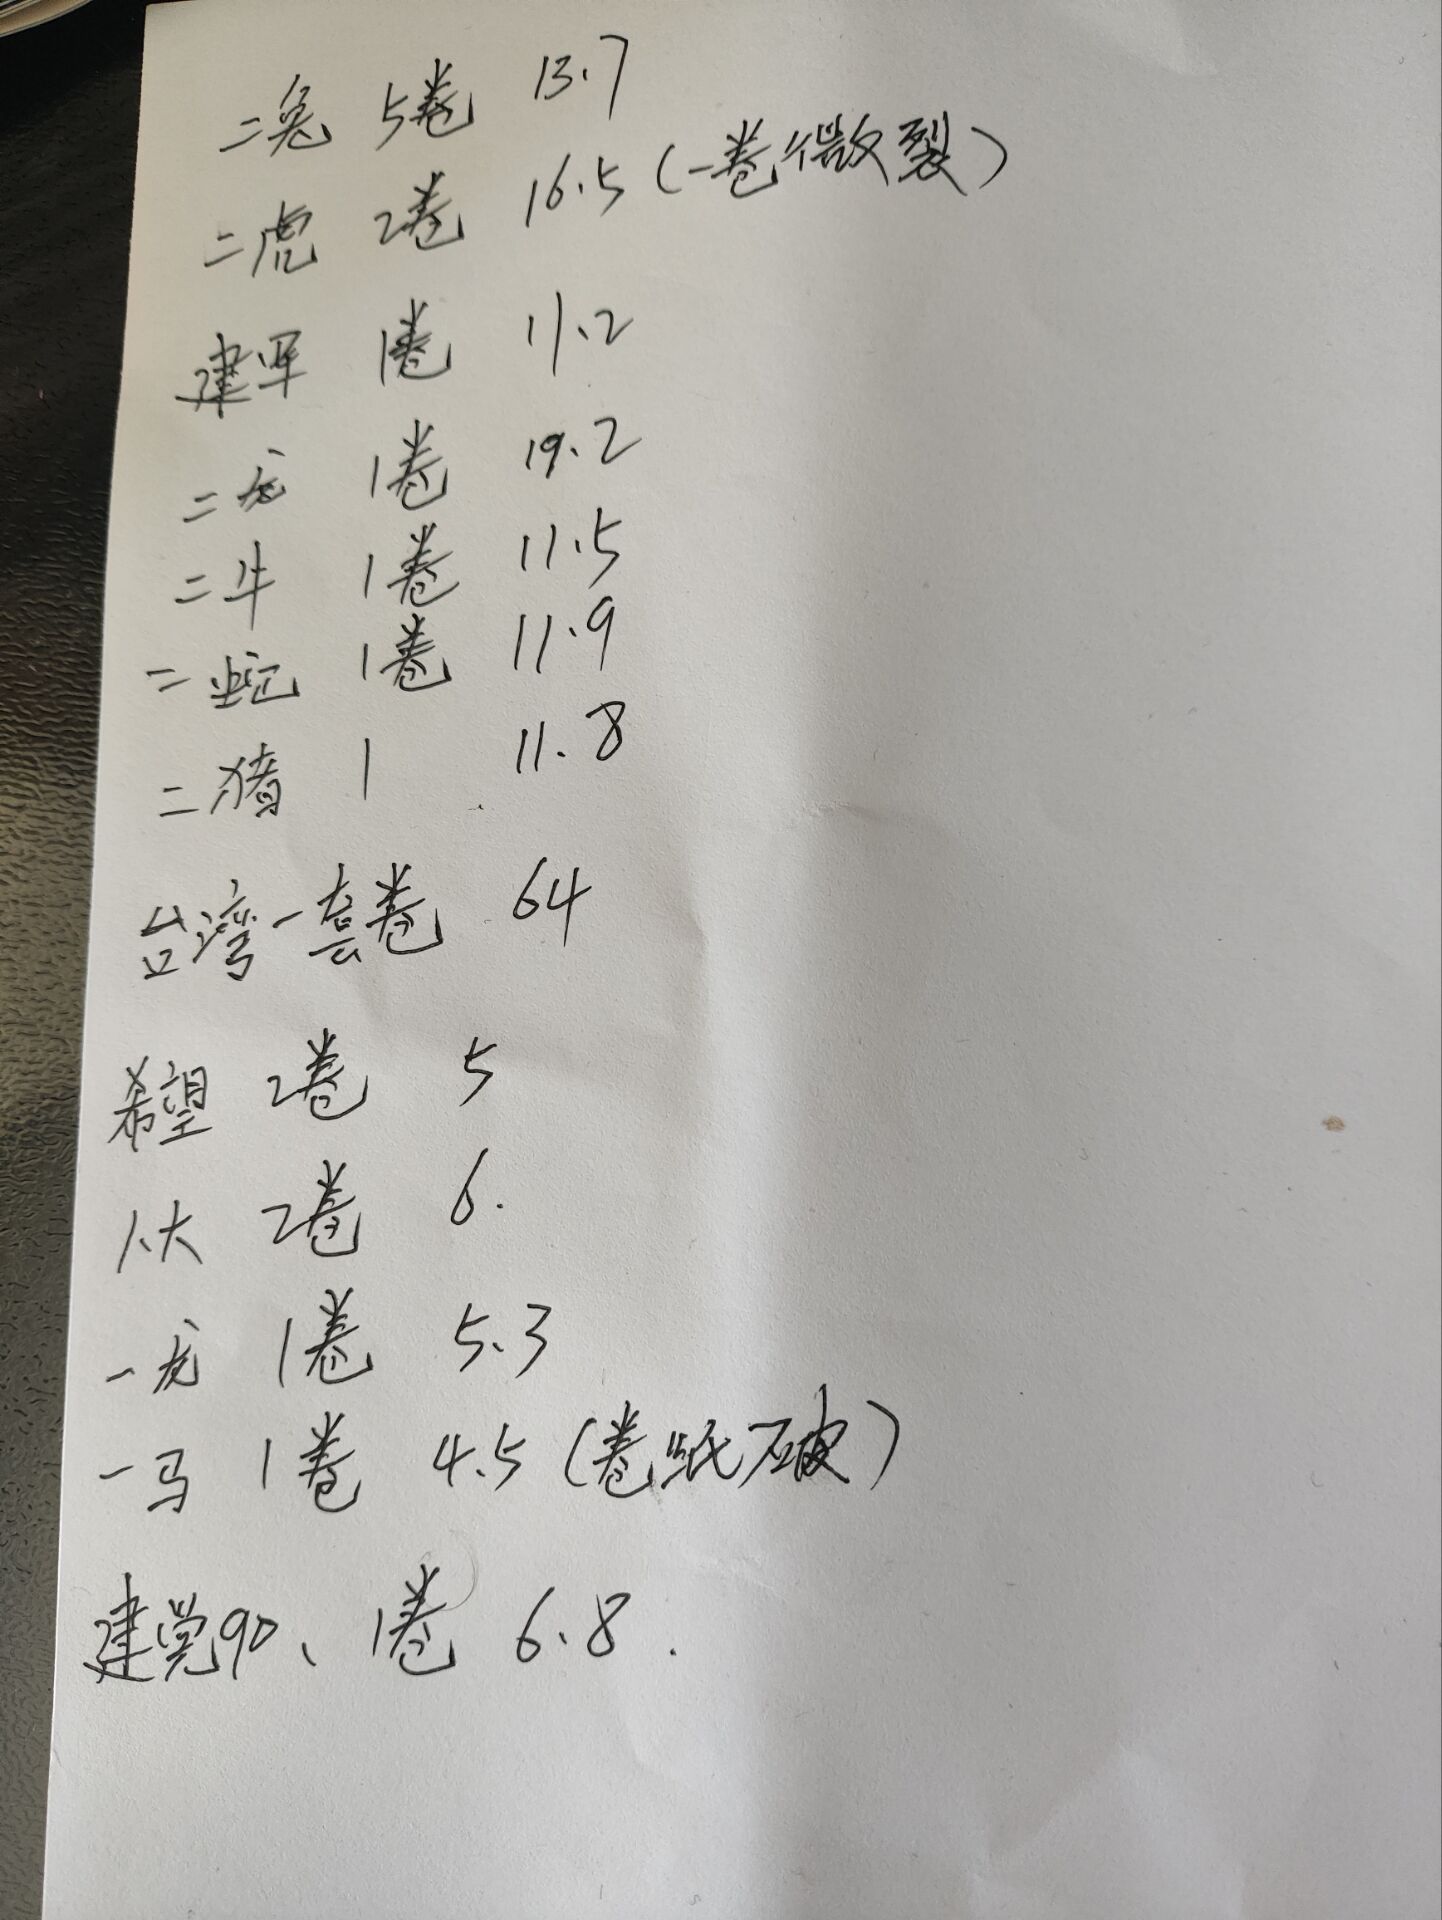 二兔 5卷 13.7
二虎 2卷 16.5 (一卷微裂)
建军 1卷 11.2
二龙 1卷 19.2
二牛 1卷 11.5
二蛇 1卷 11.9
二猪 1 11.8
台湾一套卷 64
希望 2卷 5
人大 2卷 6.
一龙 1卷 5.3
一马 1卷 4.5 (卷纸破)
建党90、1卷 6.8.